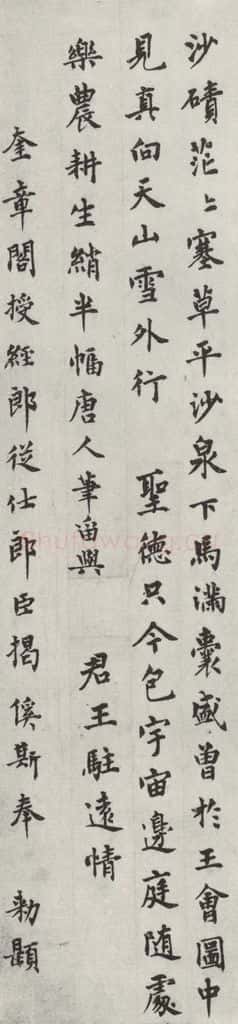 沙磧茫〻塞草平沙泉下馬滿囊盛曾於王會圖中
見真向天山雪外行 聖德只今包宇宙邊庭隨處
樂農耕生綃半幅唐人筆留與 君王駐遠情
奎章閣授經郎從仕郎臣揭傒斯奉 勑題